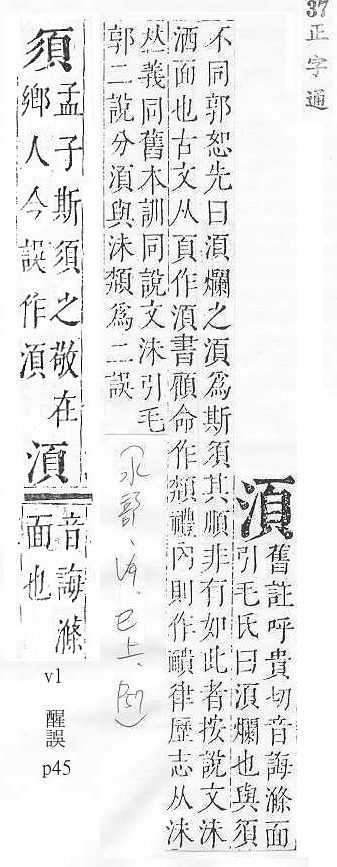 37正字通
湏
舊註呼貴切音誨滌面
引毛氏曰湏爛也與須
不同郭恕先曰湏爛之湏爲斯須其順非有如此者按說文沬
洒面也古文从頁作湏書顧命作頮禮內則作靧律歷志从沬
𠀤義同舊本訓同說文沬引毛
郭二說分湏與沬頮爲二誤
須
孟子斯須之敬在
鄉人今誤作湏
湏
音誨滌
面也
v1
醒誤
p45